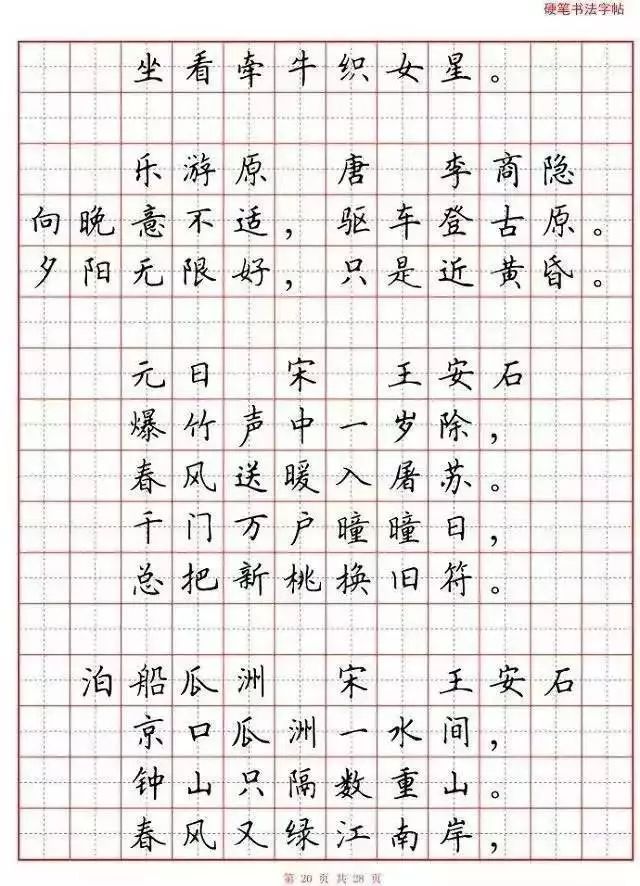 硬笔书法字帖
坐看牵牛织女星。
乐游原 唐 李商隐
向晚意不适，驱车登古原。
夕阳无限好，只是近黄昏。
元日 宋 王安石
爆竹声中一岁除，
春风送暖入屠苏。
千门万户曈曈日，
总把新桃换旧符。
泊船瓜洲 宋 王安石
京口瓜洲一水间，
钟山只隔数重山。
春风又绿江南岸，
第 20 页 共 28 页